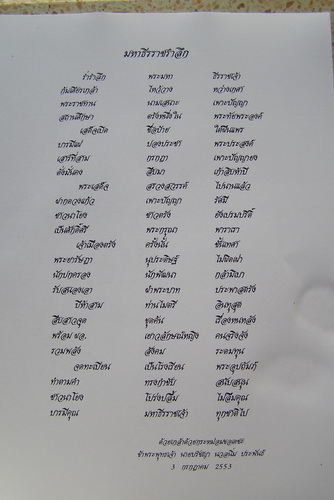 มหาธีรราชรำลึก
ร่ำรำลึก พระมหา ธีรราชเจ้า
ก้มศิระเกล้า ไหว้วาง หว่างเกศา
พระราชทาน นามเสนาะ เพาะปัญญา
สถานศึกษา ตรังหนึ่งใน พระทัยพระองค์
เสด็จเปิด ชื่อป้าย ใต้ผืนแพร
บารมีแผ่ ปองประชา พระประสงค์
เสาร์ที่สาม กรกฎา เพาะปัญญายง
ดั่งมั่นคง สืบมา เก้าสิบห้าปี
พระเสด็จ สรวงสวรรค์ ไปนานแล้ว
ผ่าดวงแก้ว เพาะปัญญา รัศมี
ชาวนาโยง ชาวตรัง ยังเปรมปรีดิ์
เป็นศักดิ์ศรี พระกรุณา พาราธา
เจ้าเมืองตรัง ครั้งนั้น
พระยารัษฎา นุประดิษฐ์ ไม่ผิดฝา
นักปกครอง นักพัฒนา
รับสนองเอา ฝ่าพระบาท ประพาสตรัง
ปีห้าสาม ท่านไมตรี อินทุสุต
สืบสาวขุด ขุดค้น เรื่องหนหลัง
พร้อม ผอ. เยาวลักษณ์หญิง คนจริงจัง
รวมพลัง สังคม ระดมทุน
จดทะเบียน เป็นโรงเรียน พระอุปถัมภ์
ทำตามคำ ทรงกำชับ สนับสนุน
ชาวนาโยง โปร่งปลื้ม ไม่ลืมคุณ
บารมีคุณ มหาธีรราชเจ้า ทุกชาติไป
ด้วยเกล้าด้วยกระหม่อมขอเดชะ
ข้าพระพุทธเจ้า นายปรีชญา นวลนิ่ม ประพันธ์
3 กรกฎาคม 2553